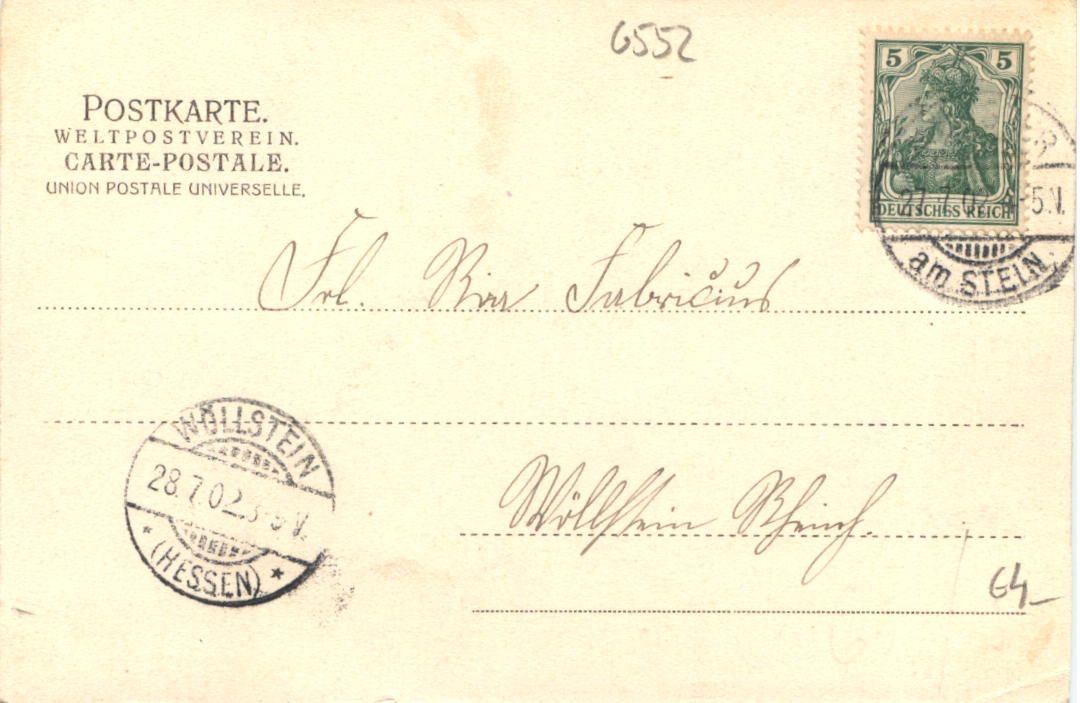 6552
POSTKARTE.
WELTPOSTVEREIN.
CARTE-POSTALE.
UNION POSTALE UNIVERSELLE.
5 5
DEUTSCHES REICH
27.7.02 4-5.V.
am STEIN
Frl. Ria Fabricius
WÖLLSTEIN
28.7.02. V.
* (HESSEN) *
Wöllstein Rheinh.
64-